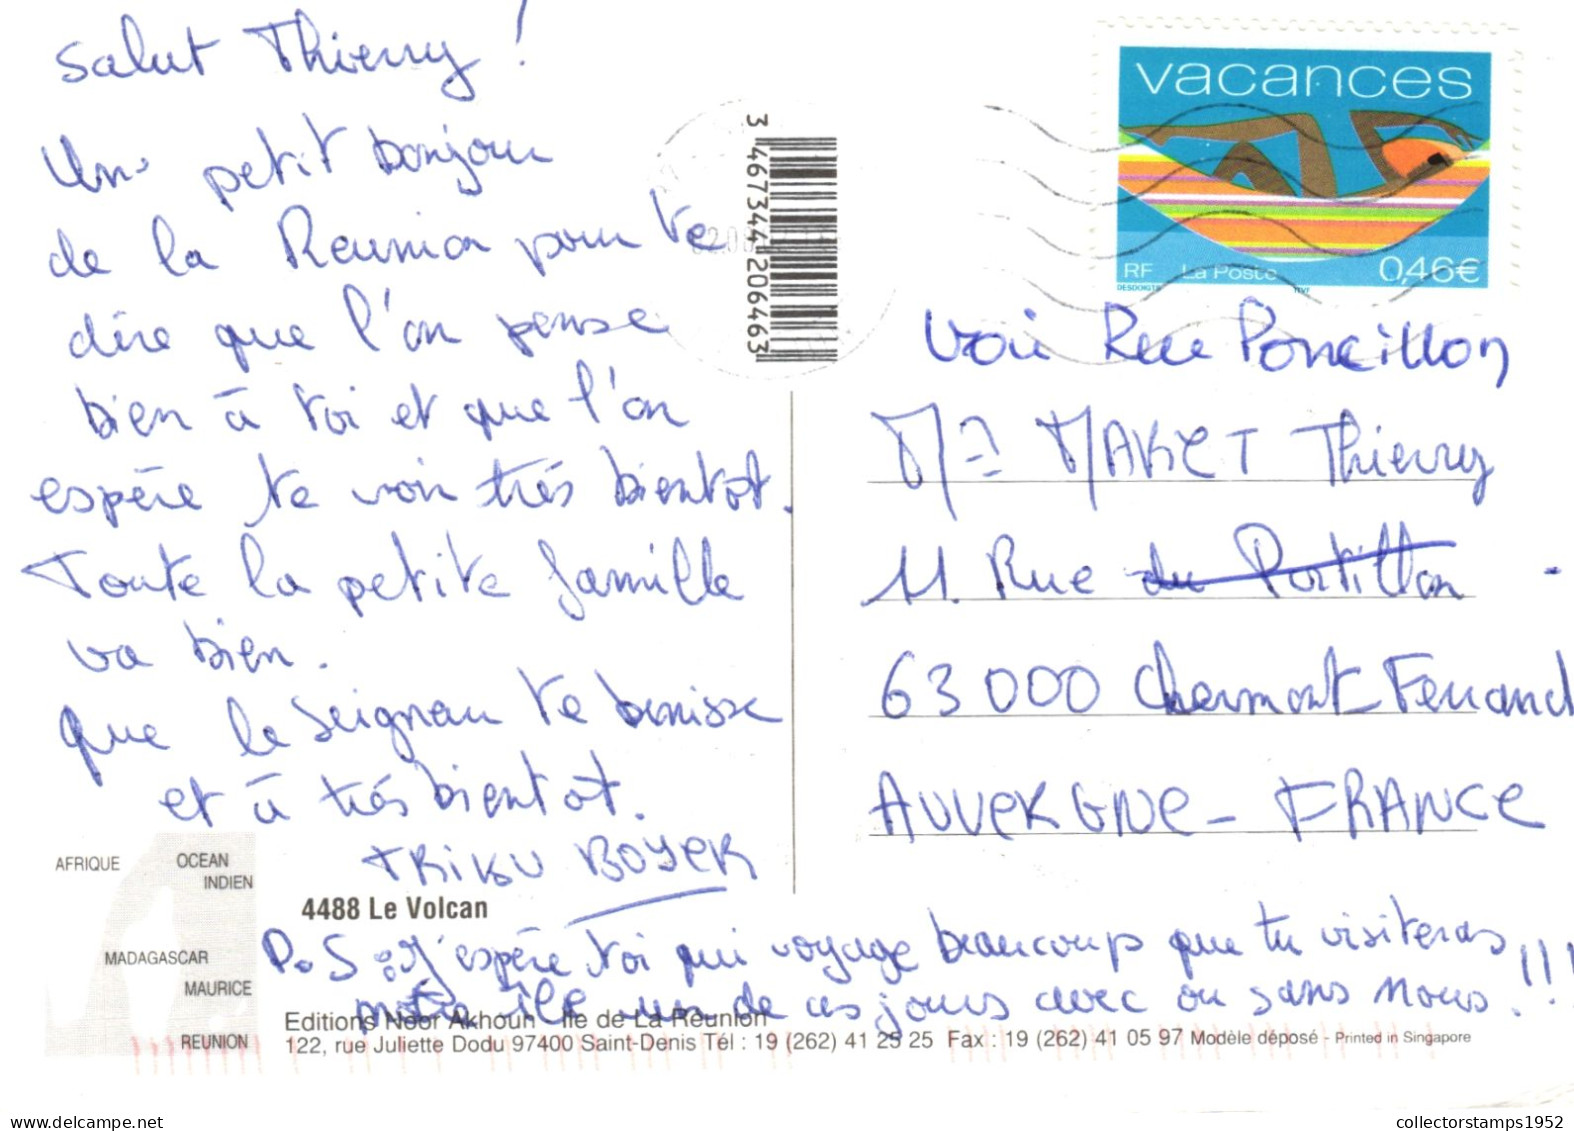 Salut Thierry !
Un petit bonjour
de la Reunion pour te
dire que l'on pense
bien à toi et que l'on
espère te voir très bientot.
Toute la petite famille
va bien.
que le Seigneur te benisse
et à très bientot.
TRIBU BOYER
AFRIQUE
OCEAN
INDIEN
MADAGASCAR
MAURICE
REUNION
4488 Le Volcan
P.S : J'espère toi qui voyage beaucoup que tu visiteras
notre île un de ces jours avec ou sans nous. !!!
Editions Noor Akhoun Ile de La Réunion
122, rue Juliette Dodu 97400 Saint-Denis Tél : 19 (262) 41 25 25 Fax : 19 (262) 41 05 97 Modèle déposé - Printed in Singapore
3 467344 206463
vacances
RF La Poste 0,46€
Voir Rue Poncillon
Mr MAKET Thierry
11. Rue du Portillon
63000 Clermont Ferrand
AUVERGNE - FRANCE
collectorstamps1952